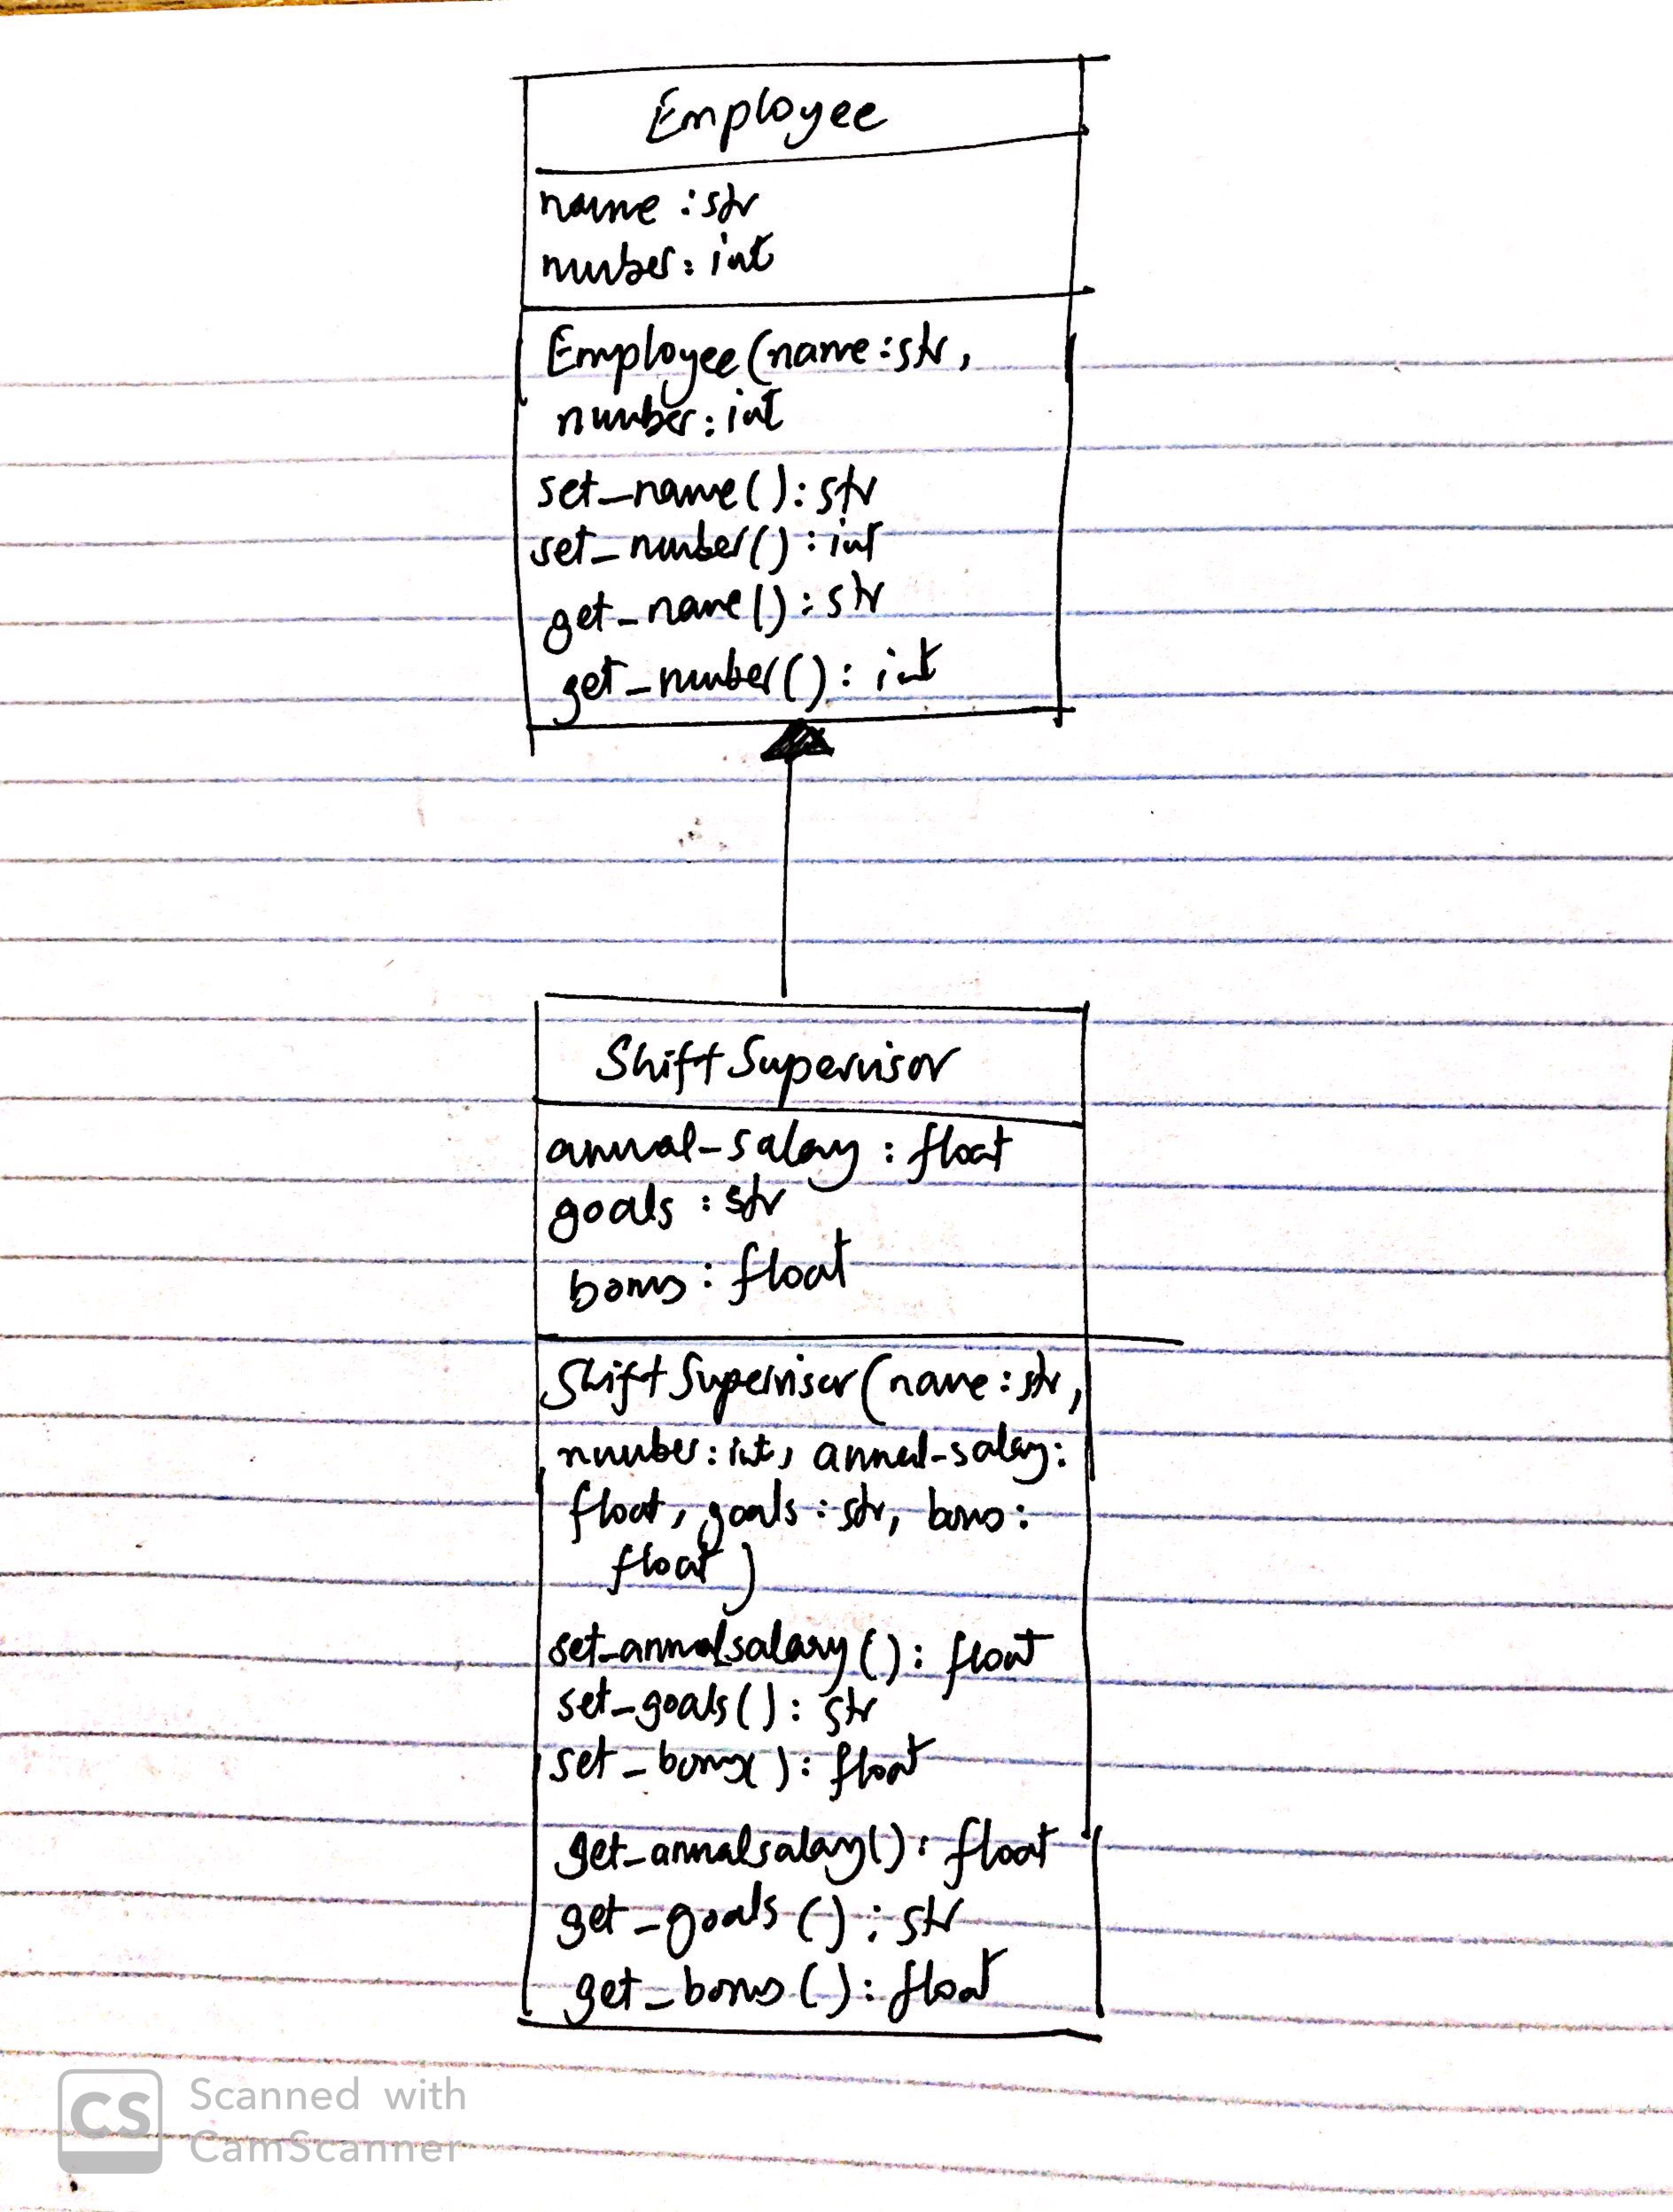 Employee
name : str
number : int
Employee (name : str,
number : int
set_name() : str
set_number() : int
get_name() : str
get_number() : int
ShiftSupervisor
annual-salary : float
goals : str
bonus : float
ShiftSupervisor (name : str,
number : int, annual-salary :
float, goals : str, bonus :
float)
set_annualsalary() : float
set_goals() : str
set_bonus() : float
get_annualsalary() : float
get_goals() : str
get_bonus() : float
CS Scanned with
CamScanner